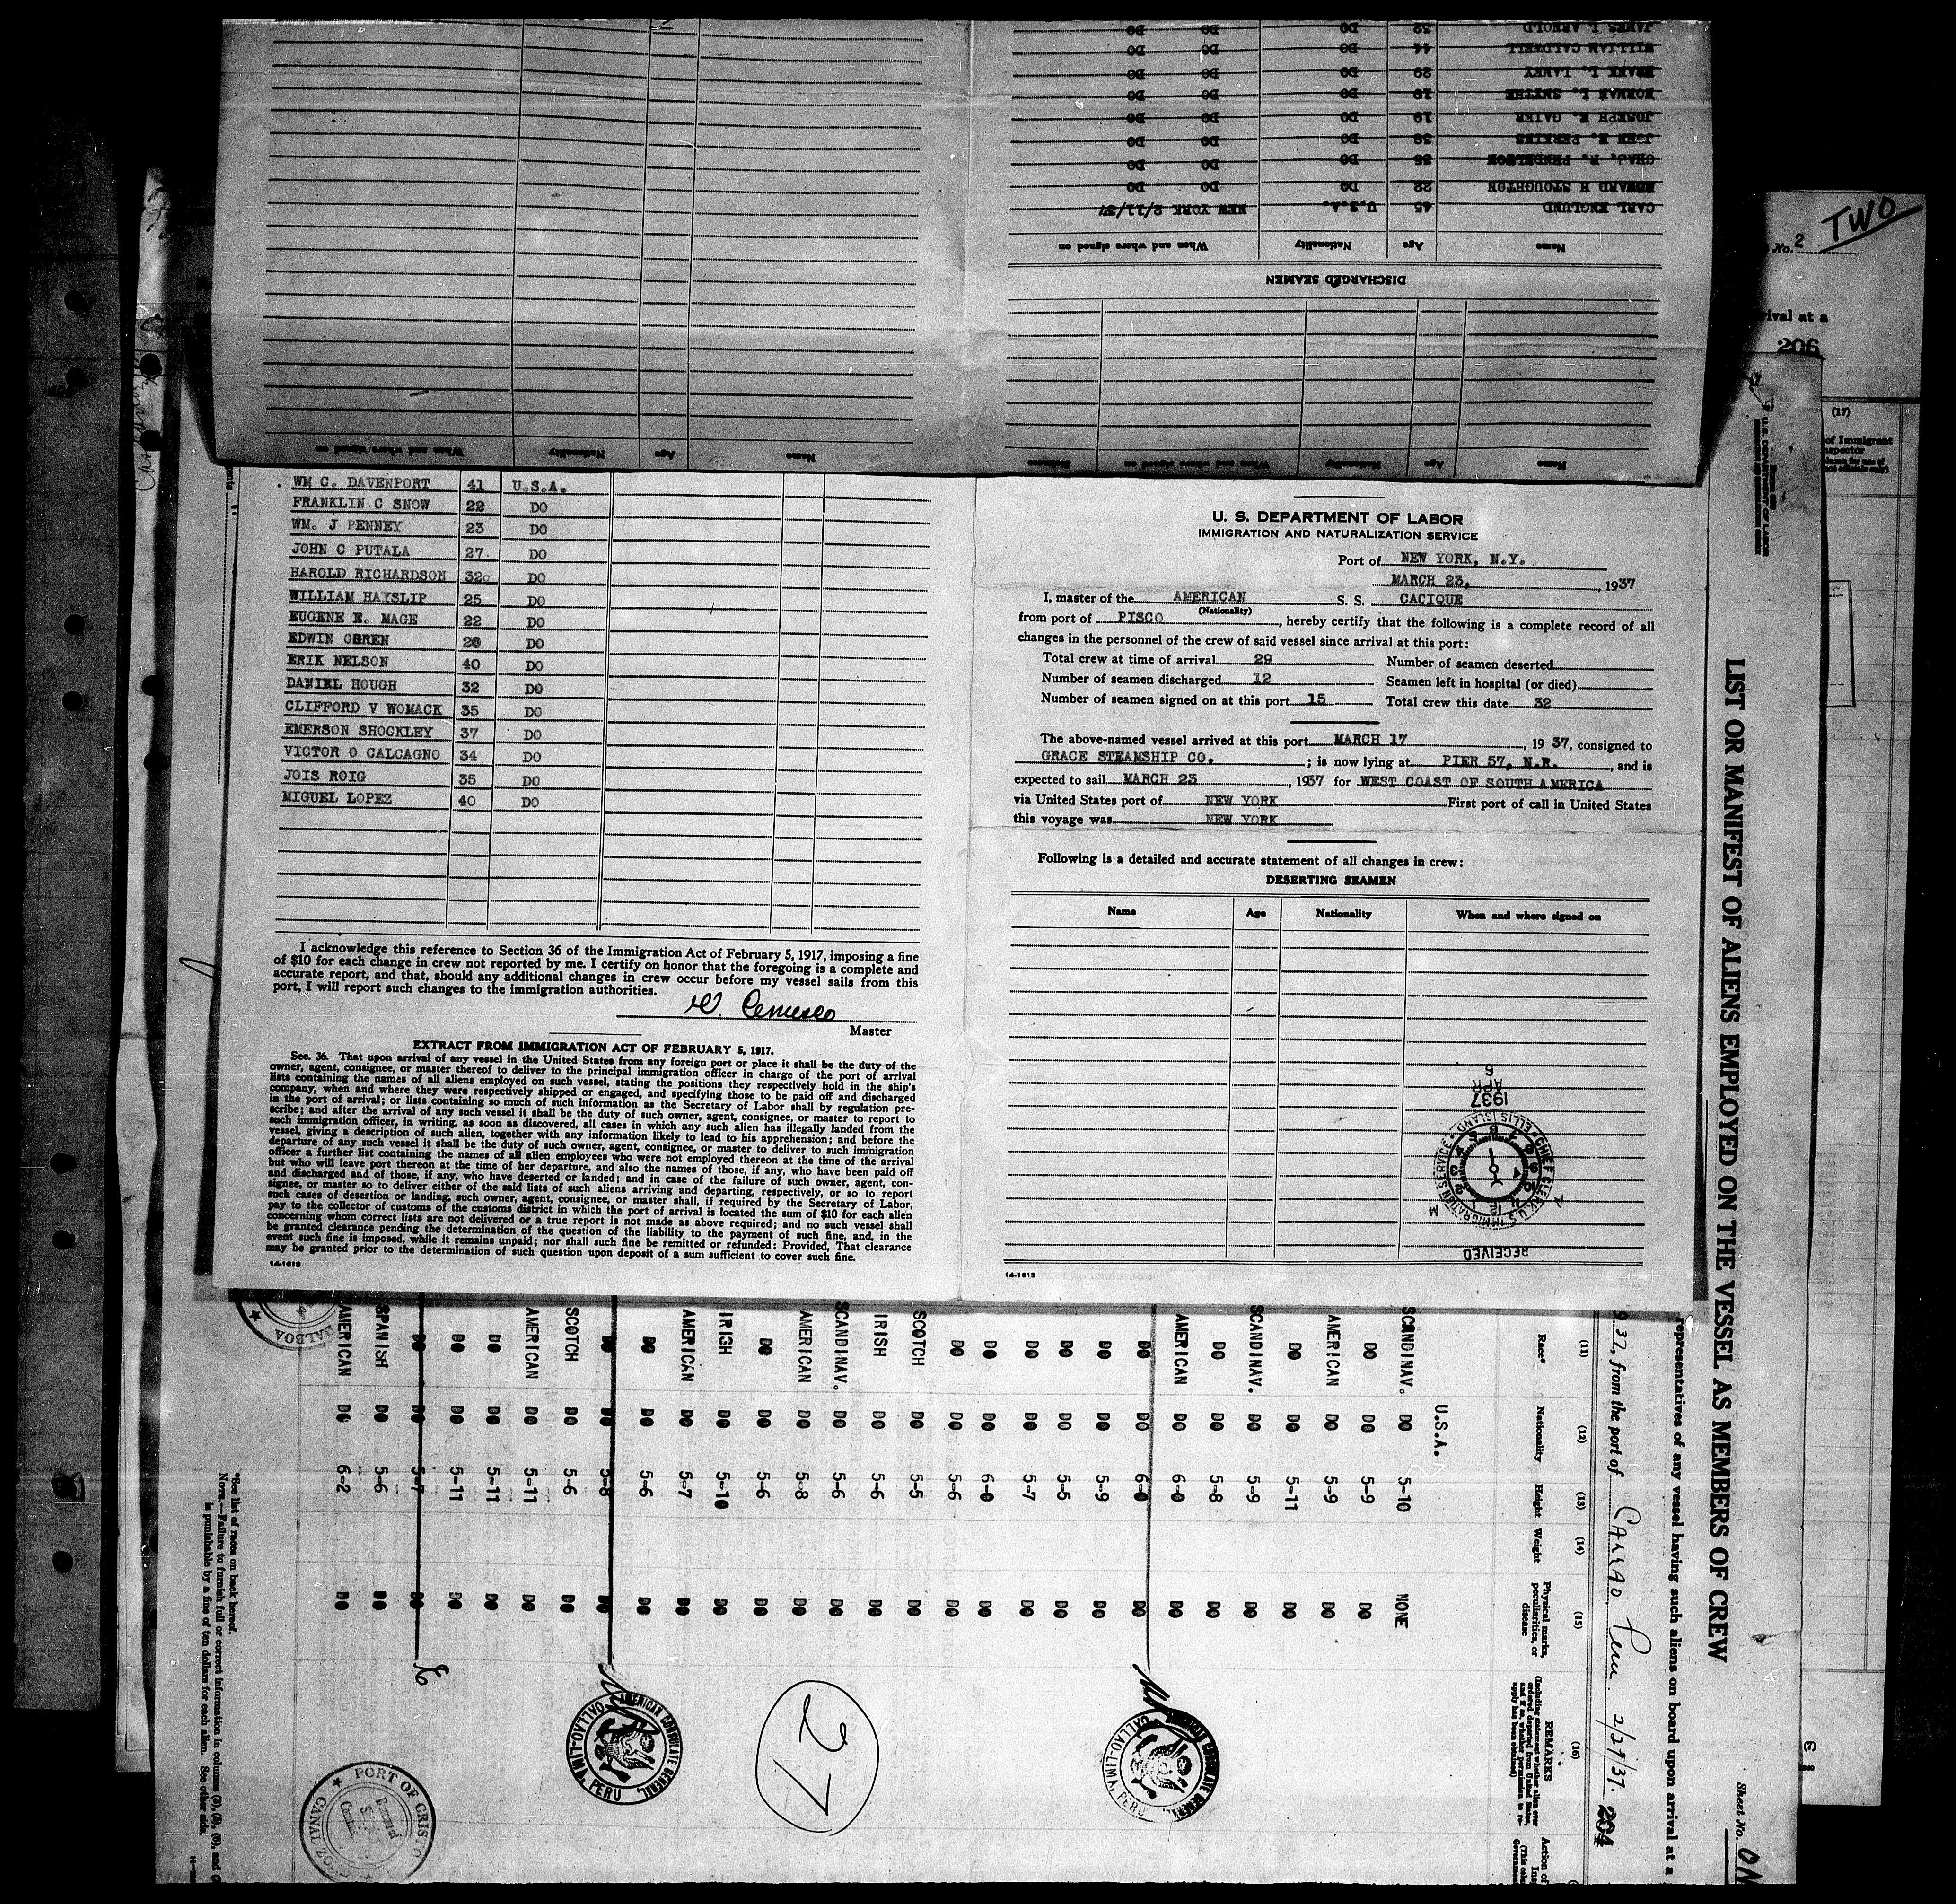 JAMES L ARNOLD 32 DO DO DO
WILLIAM CALDWELL 44 DO DO DO
FRANK L. LAMEY 29 DO DO DO
NORMAN L. SMYTHE 19 DO DO DO
JOSEPH E. GAIER 19 DO DO DO
JOHN E. PERKINS 38 DO DO DO
CHAS. R. 35 DO DO DO
EDWARD H STOUGHTON 22 DO DO DO
CARL ENGLUND 45 U.S.A. NEW YORK 2/11/37
Name Age Nationality When and where signed on
DISCHARGED SEAMEN
Name Age Nationality When and where signed on
Name Age Nationality When and where signed on
WM C. DAVENPORT 41 U.S.A.
FRANKLIN C SNOW 22 DO
WM. J PENNEY 23 DO
JOHN C PUTALA 27 DO
HAROLD RICHARDSON 32 DO
WILLIAM HAYSLIP 25 DO
EUGENE E. MAGE 22 DO
EDWIN OGREN 26 DO
ERIK NELSON 40 DO
DANIEL HOUGH 32 DO
CLIFFORD V WOMACK 35 DO
EMERSON SHOCKLEY 37 DO
VICTOR O CALCAGNO 34 DO
JOIS ROIG 35 DO
MIGUEL LOPEZ 40 DO
I acknowledge this reference to Section 36 of the Immigration Act of February 5, 1917, imposing a fine
of $10 for each change in crew not reported by me. I certify on honor that the foregoing is a complete and
accurate report, and that, should any additional changes in crew occur before my vessel sails from this
port, I will report such changes to the immigration authorities.
Master
EXTRACT FROM IMMIGRATION ACT OF FEBRUARY 5, 1917.
Sec. 36. That upon arrival of any vessel in the United States from any foreign port or place it shall be the duty of the
owner, agent, consignee, or master thereof to deliver to the principal immigration officer in charge of the port of arrival
lists containing the names of all aliens employed on such vessel, stating the positions they respectively hold in the ship's
company, when and where they were respectively shipped or engaged, and specifying those to be paid off and discharged
in the port of arrival; or lists containing so much of such information as the Secretary of Labor shall by regulation pre-
scribe; and after the arrival of any such vessel it shall be the duty of such owner, agent, consignee, or master to report to
such immigration officer, in writing, as soon as discovered, all cases in which any such alien has illegally landed from the
vessel, giving a description of such alien, together with any information likely to lead to his apprehension; and before the
departure of any such vessel it shall be the duty of such owner, agent, consignee, or master to deliver to such immigration
officer a further list containing the names of all alien employees who were not employed thereon at the time of the arrival
but who will leave port thereon at the time of her departure, and also the names of those, if any, who have been paid off
and discharged and of those, if any, who have deserted or landed; and in case of the failure of such owner, agent, con-
signee, or master so to deliver either of the said lists of such aliens arriving and departing, respectively, or so to report
such cases of desertion or landing, such owner, agent, consignee, or master shall, if required by the Secretary of Labor,
pay to the collector of customs of the customs district in which the port of arrival is located the sum of $10 for each alien
concerning whom correct lists are not delivered or a true report is not made as above required; and no such vessel shall
be granted clearance pending the determination of the question of the liability to the payment of such fine, and, in the
event such fine is imposed, while it remains unpaid; nor shall such fine be remitted or refunded: Provided, That clearance
may be granted prior to the determination of such question upon deposit of a sum sufficient to cover such fine.
14-1613
U. S. DEPARTMENT OF LABOR
IMMIGRATION AND NATURALIZATION SERVICE
Port of NEW YORK, N.Y.
MARCH 23, 1937
I, master of the AMERICAN S. S. CACIQUE
(Nationality)
from port of PISCO, hereby certify that the following is a complete record of all
changes in the personnel of the crew of said vessel since arrival at this port:
Total crew at time of arrival 29 Number of seamen deserted
Number of seamen discharged 12 Seamen left in hospital (or died)
Number of seamen signed on at this port 15 Total crew this date 32
The above-named vessel arrived at this port MARCH 17, 19 37, consigned to
GRACE STEAMSHIP CO.; is now lying at PIER 57, N.R., and is
expected to sail MARCH 23, 1937 for WEST COAST OF SOUTH AMERICA
via United States port of NEW YORK First port of call in United States
this voyage was NEW YORK
Following is a detailed and accurate statement of all changes in crew:
DESERTING SEAMEN
Name Age Nationality When and where signed on
1937
APR
5
CHIEF CLERK, U.S. IMMIGRATION SERVICE ELLIS ISLAND
M
RECEIVED
14-1613
TWO
No. 2
rival at a
206
(17)
of Immigrant
LIST OR MANIFEST OF ALIENS EMPLOYED ON THE VESSEL AS MEMBERS OF CREW
Sheet No. ON
representatives of any vessel having such aliens on board upon arrival at a
937, from the port of CALLAO Peru 2/27/37.
204
(11) (12) (13) (14) (15) (16)
Race* Nationality Height Weight Physical marks, peculiarities, or disease REMARKS
U.S.A.
SCANDINAV. DO 5-10 NONE
DO DO 5-9 DO
AMERICAN DO 5-9 DO
DO DO 5-11 DO
SCANDINAV. DO 5-9 DO
DO DO 5-8 DO
AMERICAN DO 6-0 DO
DO DO 6-0 DO
DO DO 5-9 DO
DO DO 5-5 DO
DO DO 5-7 DO
DO DO 6-0 DO
DO DO 5-6 DO
SCOTCH DO 5-5 DO
IRISH DO 5-6 DO
SCANDINAV. DO 5-6 DO
AMERICAN DO 5-8 DO
DO DO 5-6 DO
IRISH DO 5-10 DO
AMERICAN DO 5-7 DO
DO DO 5-6 DO
DO DO 5-8 DO
SCOTCH DO 5-6 DO
AMERICAN DO 5-11 DO
DO DO 5-11 DO
DO DO 5-11 DO
DO DO 5-7 DO
SPANISH DO 5-6 DO
AMERICAN DO 6-2 DO
27
AMERICAN CONSULATE GENERAL, CALLAO-LIMA, PERU
AMERICAN CONSULATE GENERAL, CALLAO-LIMA, PERU
BALBOA
PORT OF CRISTO
CANAL ZO
*See list of races on back hereof.
NOTE.—Failure to furnish full or correct information in columns (3), (5), (6), and
is punishable by a fine of ten dollars for each alien. See other side.